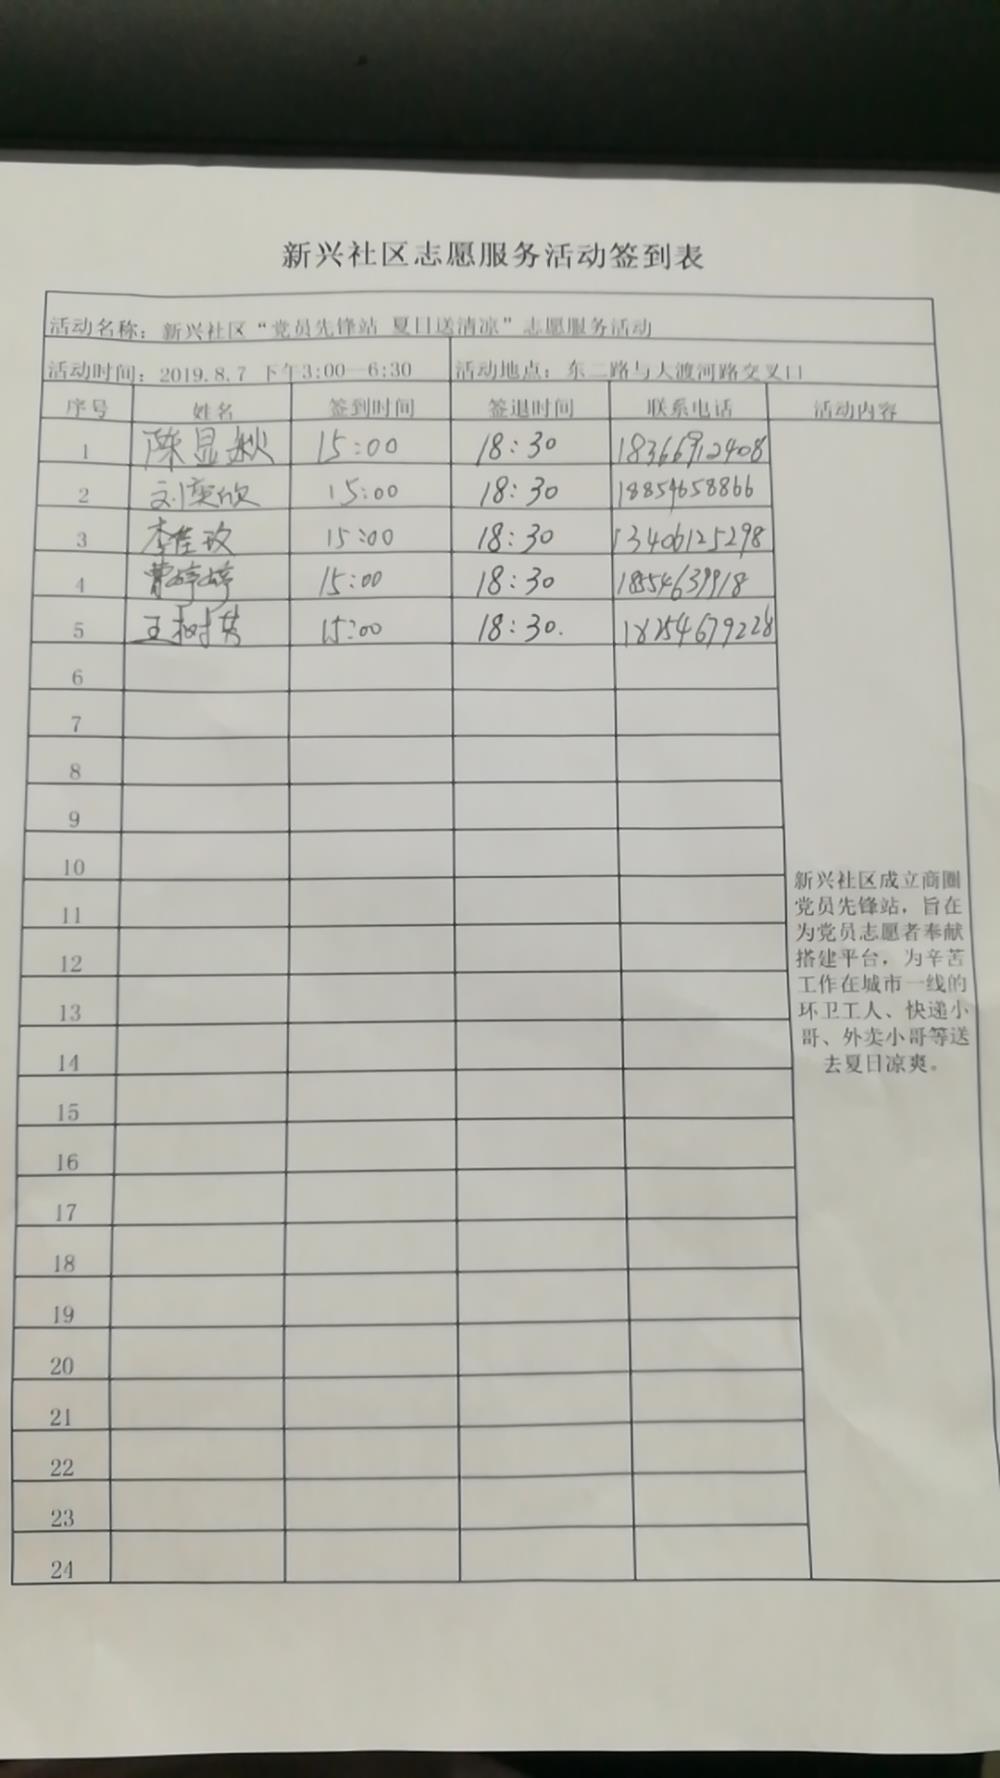 新兴社区志愿服务活动签到表
活动名称：新兴社区“党员先锋站 夏日送清凉”志愿服务活动
活动时间：2019.8.7 下午3:00—6:30 活动地点：东二路与大渡河路交叉口
序号 姓名 签到时间 签退时间 联系电话 活动内容
1 陈显秋 15:00 18:30 18366912408
2 刘奕欣 15:00 18:30 18854658866
3 李佳玫 15:00 18:30 13406125298
4 曹婷婷 15:00 18:30 18554639918
5 王树芳 15:00 18:30. 18254679228
6
7
8
9
10
11
12
13
14
15
16
17
18
19
20
21
22
23
24
新兴社区成立商圈
党员先锋站，旨在
为党员志愿者奉献
搭建平台，为辛苦
工作在城市一线的
环卫工人、快递小
哥、外卖小哥等送
去夏日凉爽。